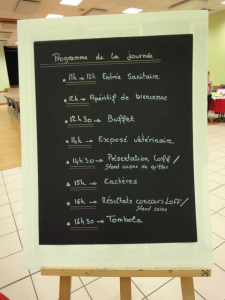 Programme de la journée
11h → 12h Entrée Sanitaire
12h → Apéritif de bienvenue
12h30 → Buffet
14h → Exposé vétérinaire
14h30 → Présentation Loff /
Stand coupes de griffes
15h → Enchères
16h → Résultats concours Loff /
Stand soins
16h30 → Tombola